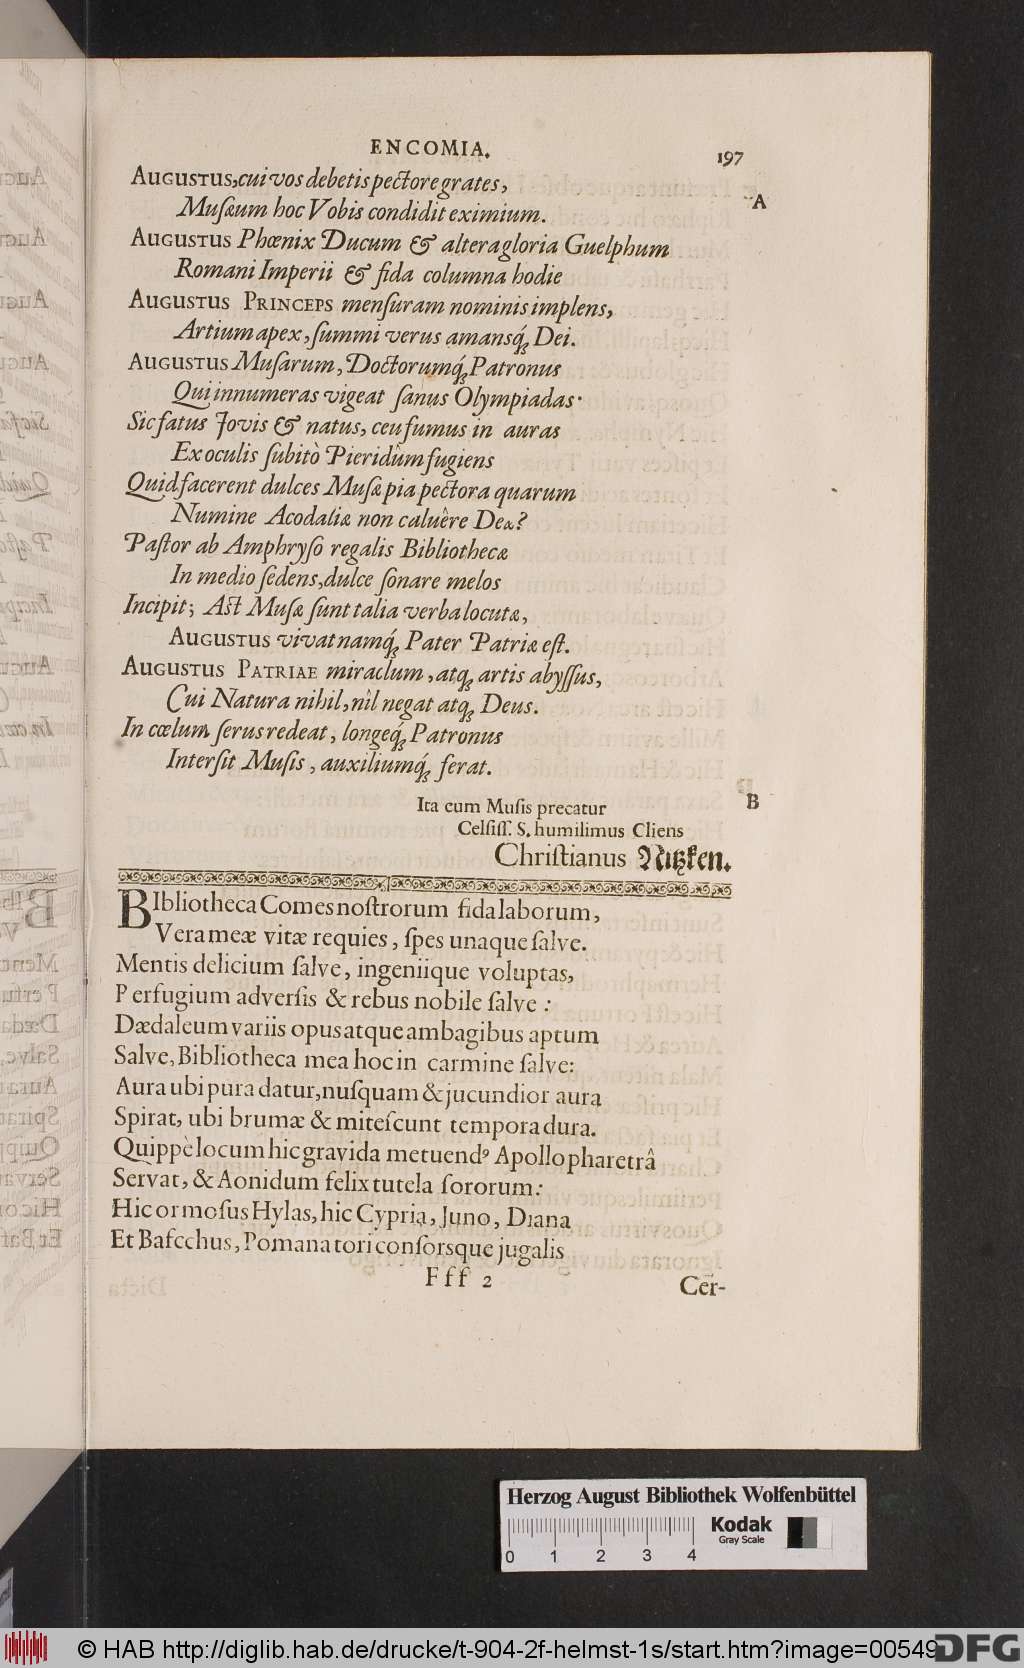 ENCOMIA. 197
AUGUSTUS, cui vos debetis pectore grates,
A
Musæum hoc Vobis condidit eximium.
AUGUSTUS Phœnix Ducum & altera gloria Guelphum
Romani Imperii & fida columna hodie
AUGUSTUS PRINCEPS mensuram nominis implens,
Artium apex, summi verus amansq́; Dei.
AUGUSTUS Musarum, Doctorumq́; Patronus
Qui innumeras vigeat sanus Olympiadas.
Sic fatus Jovis & natus, ceu fumus in auras
Ex oculis subitò Pieridûm fugiens
Quid facerent dulces Musæ pia pectora quarum
Numine Acodaliæ non caluêre Deæ?
Pastor ab Amphryso regalis Bibliothecæ
In medio sedens, dulce sonare melos
Incipit; Ast Musæ sunt talia verba locutæ,
AUGUSTUS vivat namq́; Pater Patriæ est.
AUGUSTUS PATRIAE miraclum, atq; artis abyssus,
Cui Natura nihil, nîl negat atq; Deus.
In cœlum serus redeat, longeq́; Patronus
Intersit Musis, auxiliumq́; ferat.
Ita cum Musis precatur
B
Celsiss. S. humilimus Cliens
Christianus Nitzken.
BIbliotheca Comes nostrorum fida laborum,
Vera meæ vitæ requies, spes unaque salve.
Mentis delicium salve, ingeniique voluptas,
Perfugium adversis & rebus nobile salve:
Dædaleum variis opus atque ambagibus aptum
Salve, Bibliotheca mea hoc in carmine salve:
Aura ubi pura datur, nusquam & jucundior aura
Spirat, ubi brumæ & mitescunt tempora dura.
Quippè locum hic gravida metuendꝰ Apollo pharetrâ
Servat, & Aonidum felix tutela sororum:
Hic ormosus Hylas, hic Cypria, Juno, Diana
Et Bafcchus, Pomana tori consorsque jugalis
Fff 2
Cer-
Herzog August Bibliothek Wolfenbüttel
0 1 2 3 4
Kodak
Gray Scale
© HAB http://diglib.hab.de/drucke/t-904-2f-helmst-1s/start.htm?image=00549
DFG